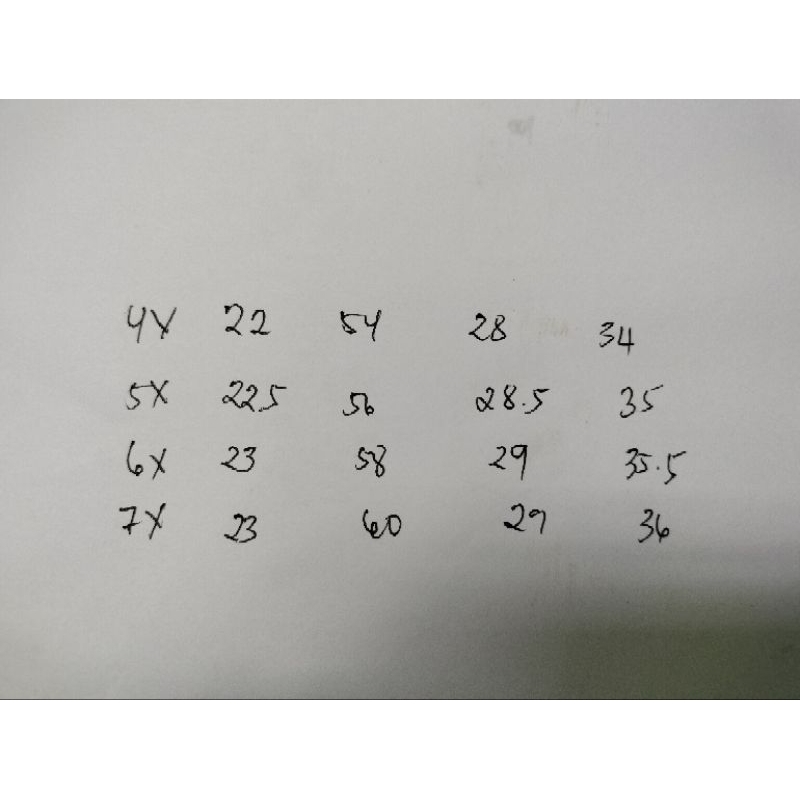 4X 22 54 28 34
5X 225 56 28.5 35
6X 23 58 29 35.5
7X 23 60 29 36